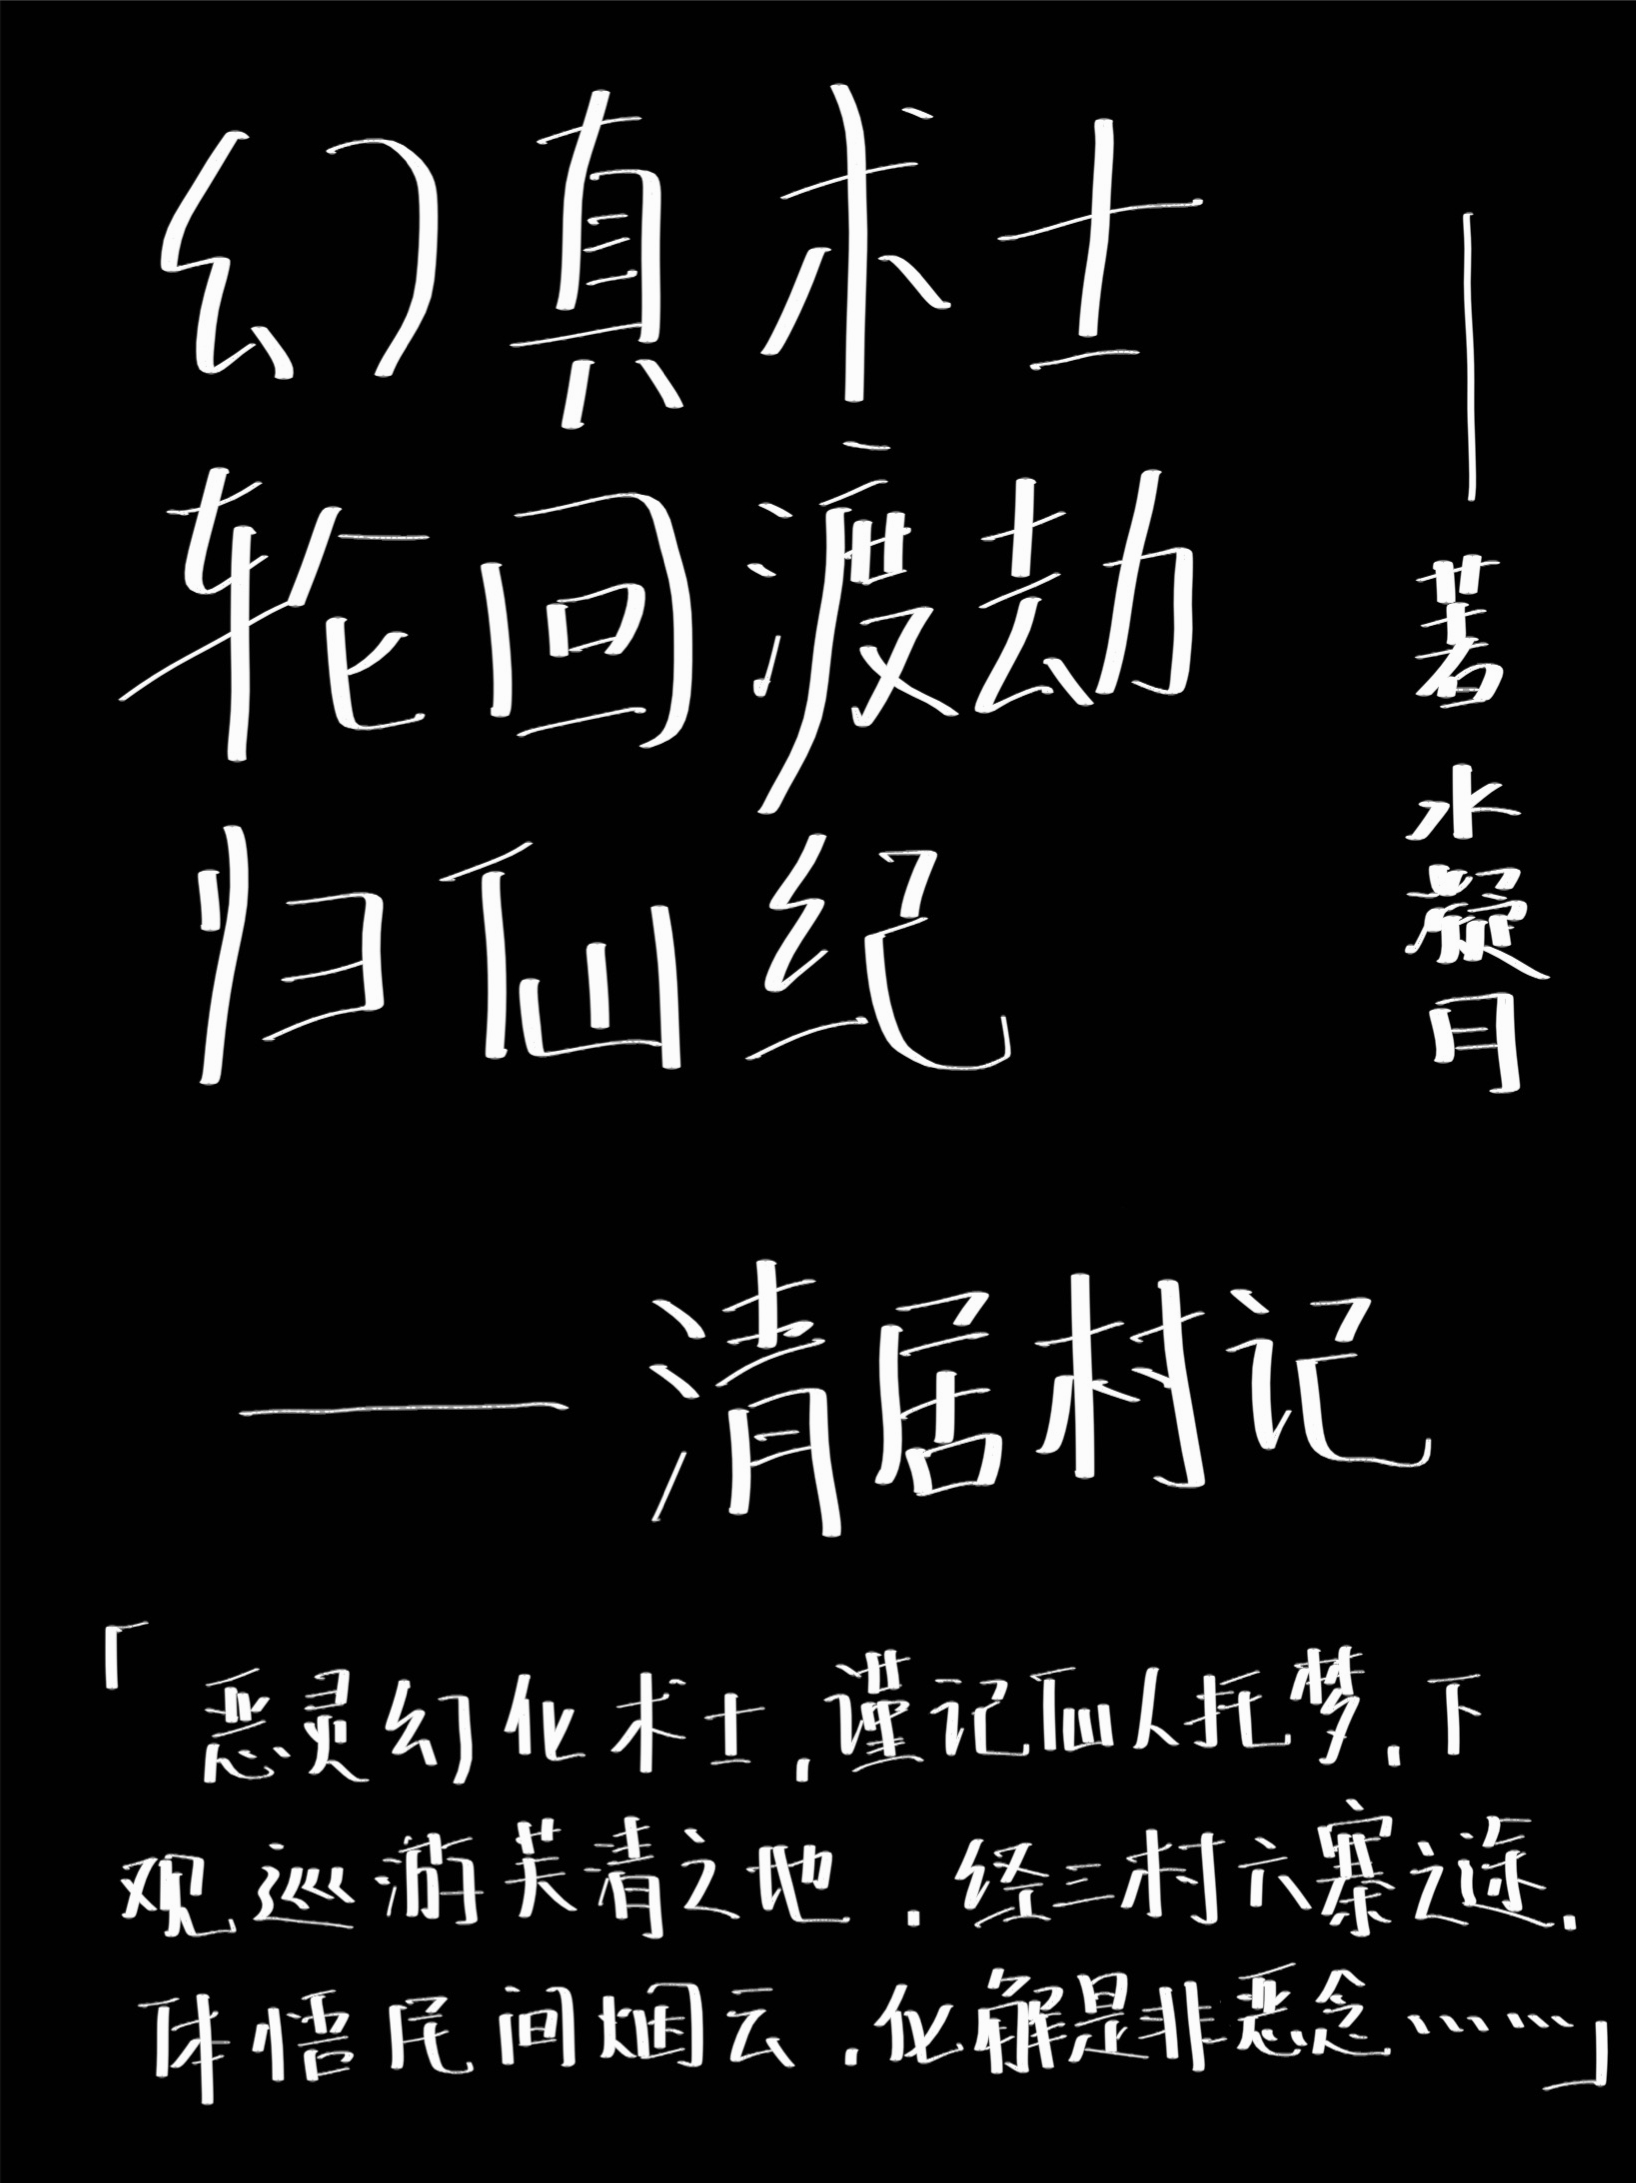 幻真术士
轮回渡劫
归仙纪
——著 水凝月
——清居村记
「恶灵幻化术士,谨记仙人托梦,下
观巡游芙青之地,经三村六寨之谜,
体悟民间烟云,化解是非恶念……」